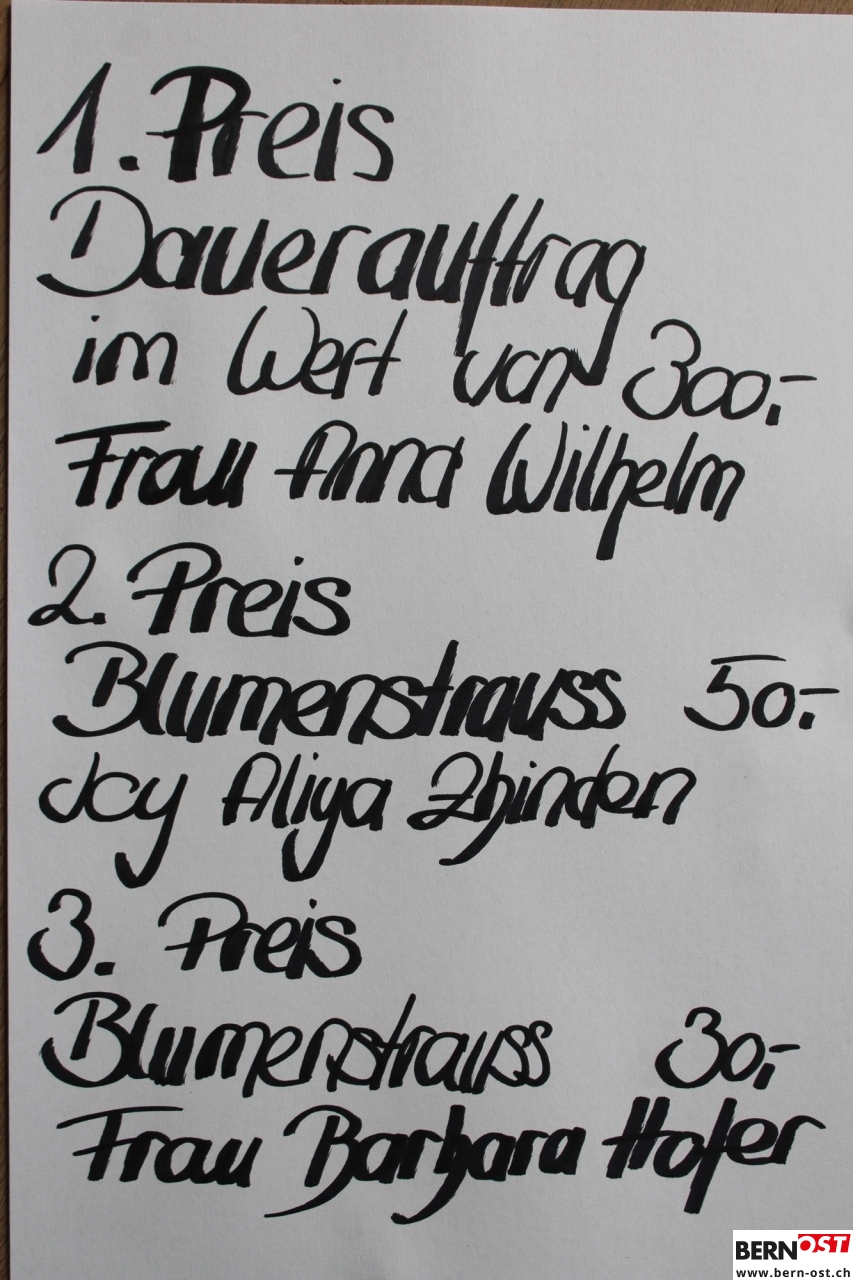 1. Preis
Dauerauftrag
im Wert von 300.-
Frau Anna Wilhelm
2. Preis
Blumenstrauss 50.-
Joy Aliya Zbinden
3. Preis
Blumenstrauss 30.-
Frau Barbara Hofer
BERNOST
www.bern-ost.ch